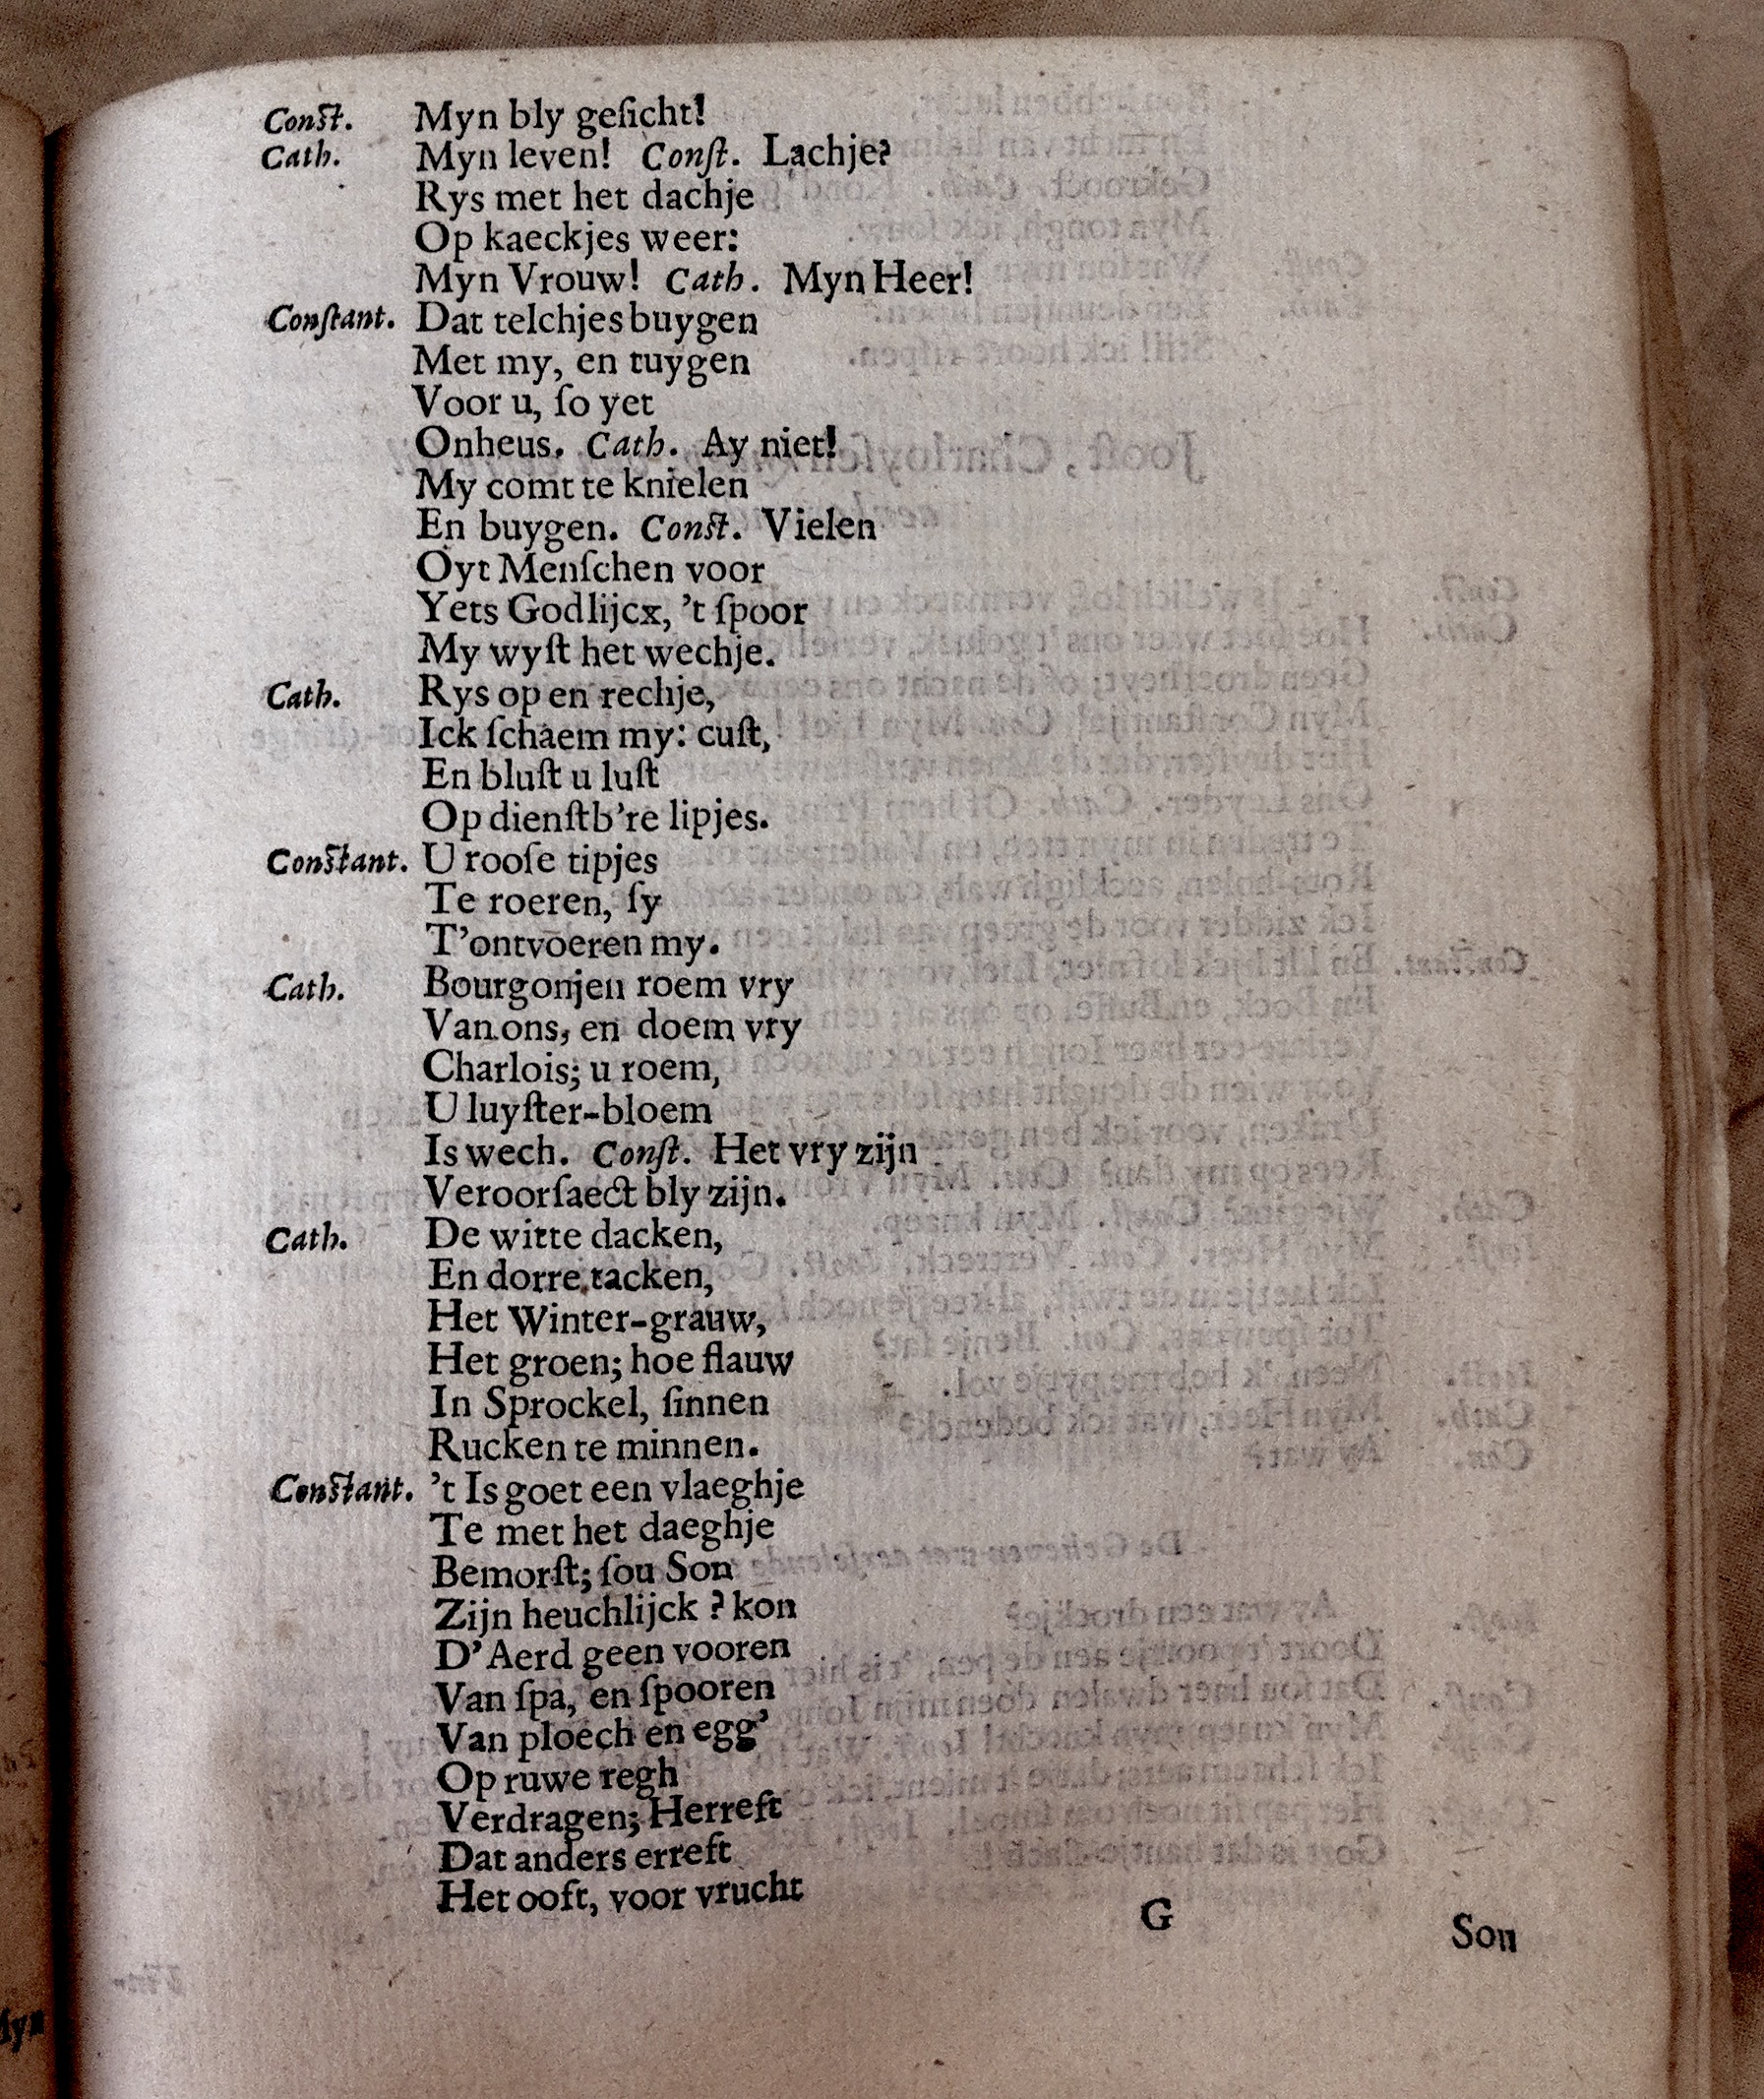 Const. Myn bly geſicht!
Cath. Myn leven! Conſt. Lachje?
Rys met het dachje
Op kaeckjes weer:
Myn Vrouw! Cath. Myn Heer!
Conſtant. Dat telchjes buygen
Met my, en tuygen
Voor u, ſo yet
Onheus. Cath. Ay niet!
My comt te knielen
En buygen. Const. Vielen
Oyt Menſchen voor
Yets Godlijcx, 't ſpoor
My wyſt het wechje.
Cath. Rys op en rechje,
Ick ſchaem my: cuſt,
En bluſt u luſt
Op dienſtb're lipjes.
Constant. U rooſe tipjes
Te roeren, ſy
T'ontvoeren my.
Cath. Bourgonjen roem vry
Van ons, en doem vry
Charlois; u roem,
U luyſter-bloem
Is wech. Conſt. Het vry zijn
Veroorſaect bly zijn.
Cath. De witte dacken,
En dorre tacken,
Het Winter-grauw,
Het groen; hoe flauw
In Sprockel, ſinnen
Rucken te minnen.
Constant. 't Is goet een vlaeghje
Te met het daeghje
Bemorſt; ſou Son
Zijn heuchlijck ? kon
D'Aerd geen vooren
Van ſpa, en ſpooren
Van ploech en egg'
Op ruwe regh
Verdragen; Herreft
Dat anders erreft
Het ooft, voor vrucht
G Son